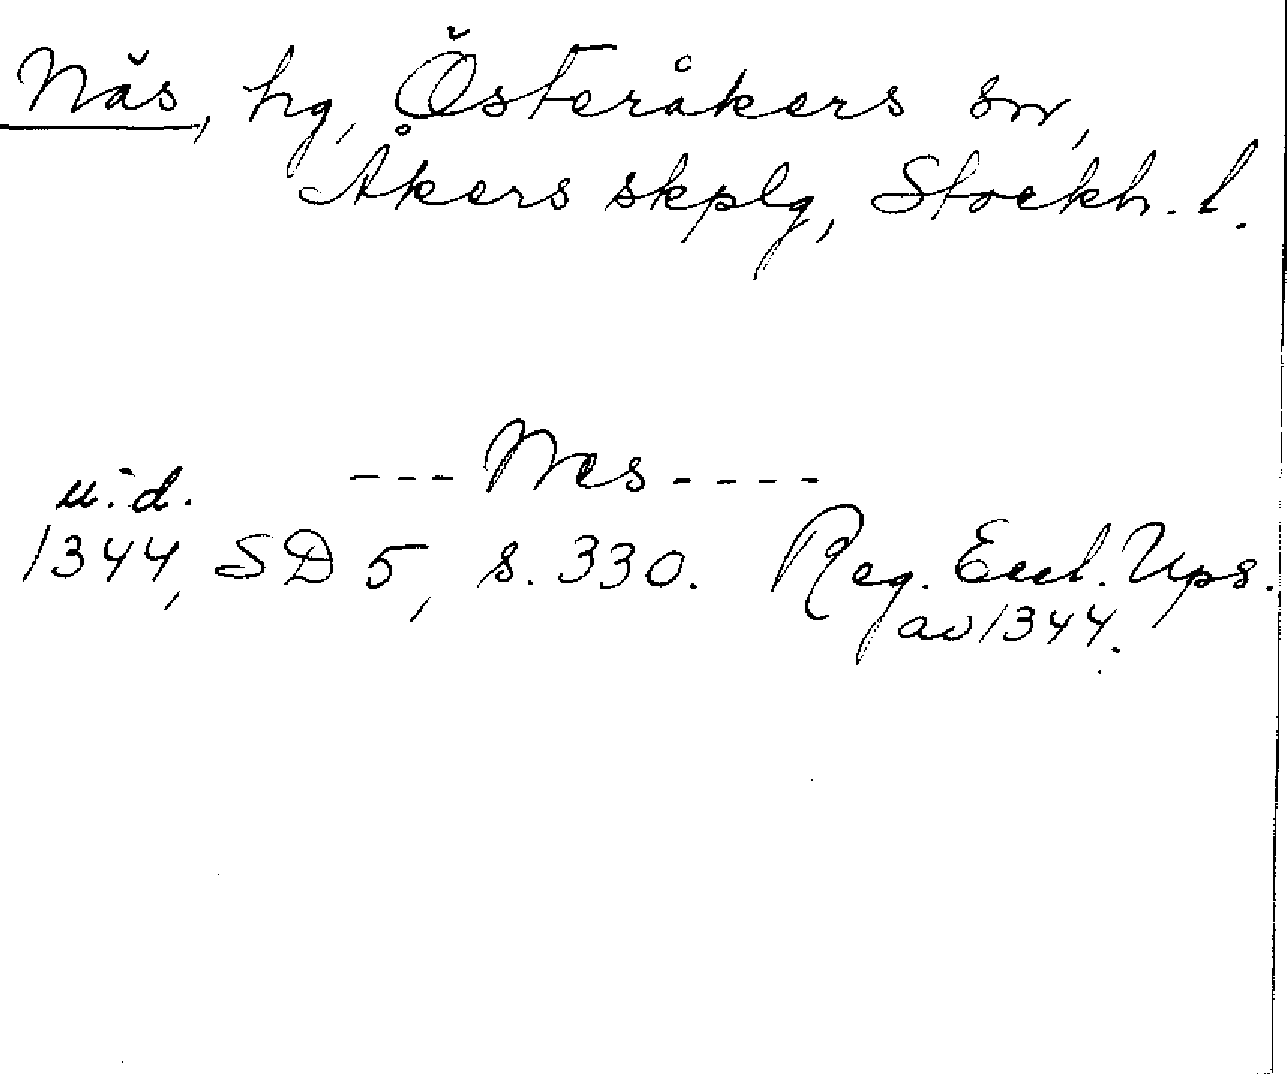 Näs, hg, Österåkers sn,
Åkers skplg, Stockh. l.
--- Nes ----
u.d.
1344, SD 5, s. 330. Reg. Eccl. Ups.
av 1344.